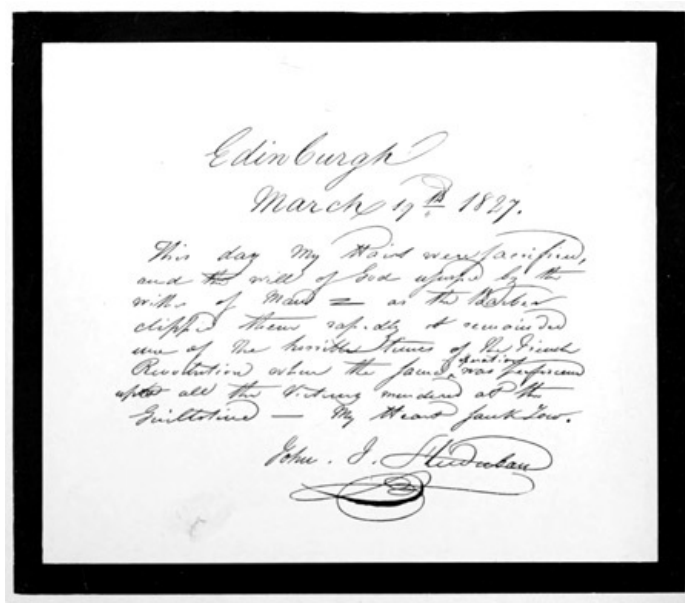 Edinburgh
March 19th 1827.
This day My Hairs were sacrificed,
and the will of God usurped by the
wishes of Man = as the Barber
clipped them rapidly it reminded
me of the horrible times of the French
Revolution when the same operation was performed
upon all the Victims murdered at the
Guillotine — My Heart sank Low.
John. J.